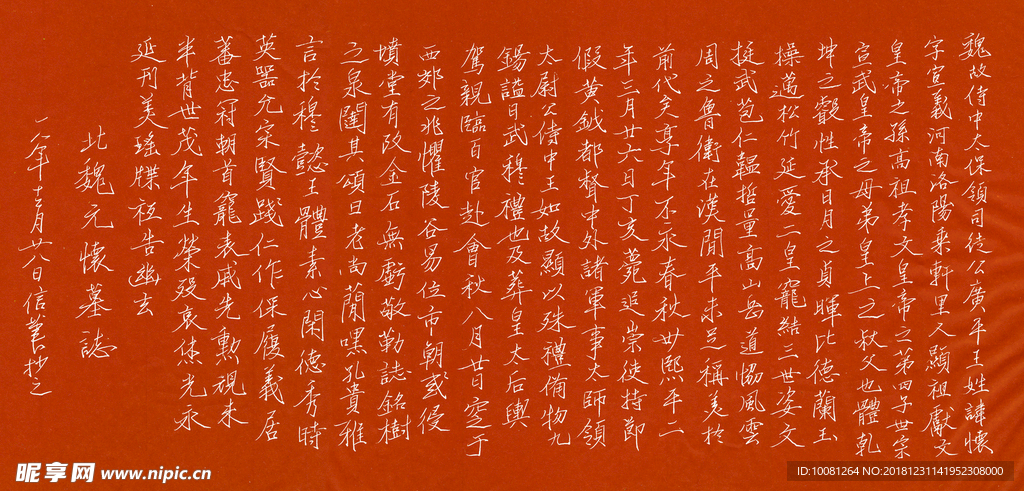 魏故侍中太保領司徒公廣平王姓諱懷
字宣義河南洛陽乘軒里人顯祖獻文
皇帝之孫高祖孝文皇帝之第四子世宗
宣武皇帝之母弟皇上之叔父也體乾
坤之叡性承日月之貞暉比德蘭玉
操邁松竹延愛二皇寵結三世姿文
挺武苞仁韞哲量高山岳道協風雲
周之魯衛在漢間平未足稱美於
前代矣享年不永春秋卅熙平二
年三月廿六日丁亥薨追崇使持節
假黃鉞都督中外諸軍事太師領
太尉公侍中王如故顯以殊禮備物九
錫謚曰武穆禮也及葬皇太后輿
駕親臨百官赴會秋八月廿日窆于
西郊之兆懼陵谷易位市朝或侵
墳堂有改金石無虧敬勒誌銘樹
之泉闥其頌曰老尚簡嘿孔貴雅
言於穆懿王體素心閑德秀時
英器允宗賢踐仁作保履義居
蕃忠冠朝首寵表戚先勳視未
半背世茂年生榮歿哀休光永
延刊美瑤牒祗告幽玄
北魏元懷墓誌
一八年十二月廿八日信筆抄之
昵享网 www.nipic.cn
ID:10081264 NO:20181231141952308000